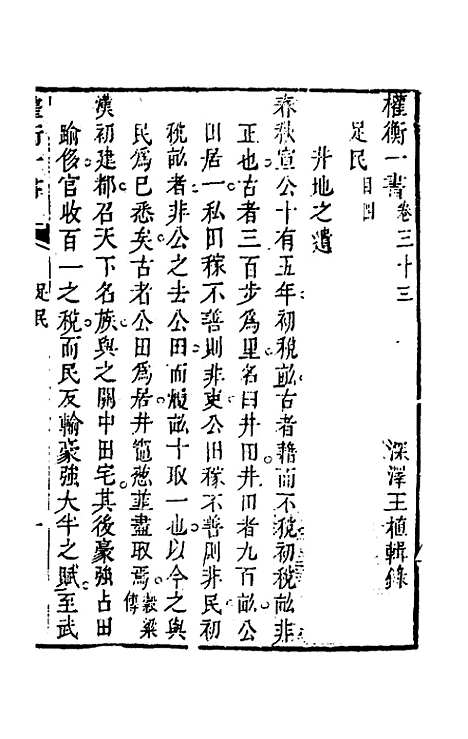 權衡一書卷三十三
深澤王植輯錄
足民目四
井地之遺
春秋宣公十有五年初稅畝古者藉而不稅初稅畝非
正也古者三百步爲里名曰井田井田者九百畝公
田居一私田稼不善則非吏公田稼不善則非民初
稅畝者非公之去公田而履畝十取一也以今之與
民爲已悉矣古者公田爲居井竈葱韭盡取焉穀梁傳
漢初建都召天下名族與之關中田宅其後豪強占田
踰侈官收百一之稅而民反輸豪強大半之賦至武
足民
一